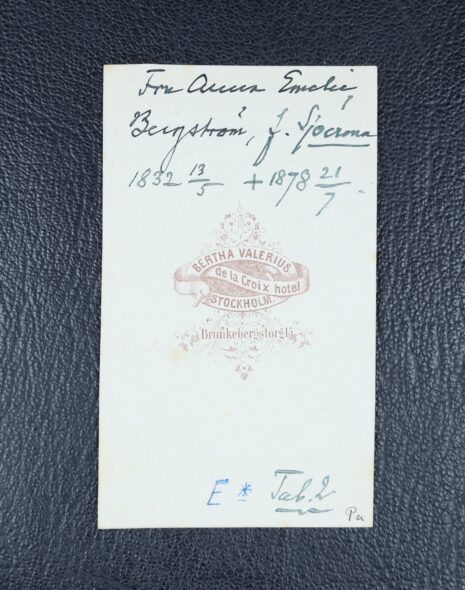 Fru Anna Emelie
Bergström, f. Sjöcrona
1832 13/5 + 1878 21/7.
BERTHA VALERIUS.
de la Croix hotel
STOCKHOLM.
Brunkebergstorg 15.
E * Tab. 2
Pu